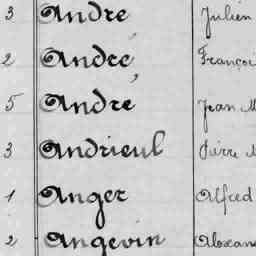 3 André Julien
2 André Françoi
5 André Jean M
3 Andrieul Pierre M
1 Anger Alfred
2 Angevin Alexan